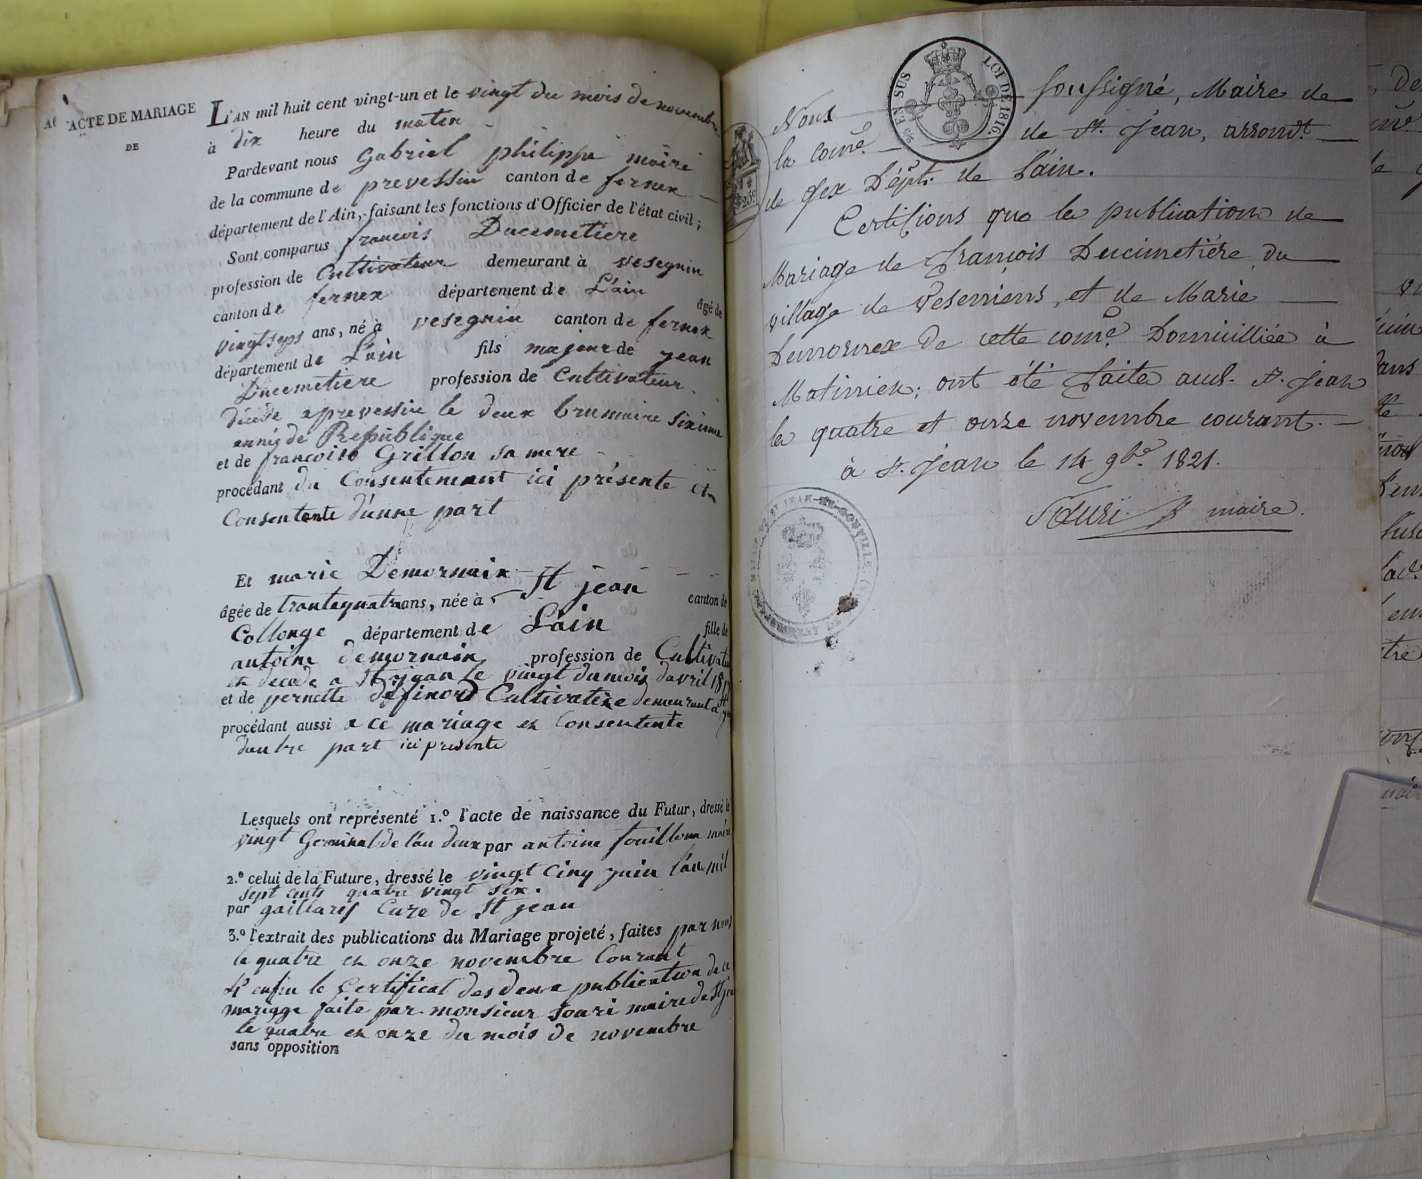 ACTE DE MARIAGE
DE
L'AN mil huit cent vingt-un et le vingt du mois de novembre
à dix heure du maten
Pardevant nous Gabriel philippe maire
de la commune de prevessin canton de fernex
département de l'Ain, faisant les fonctions d'Officier de l'état civil;
Sont comparus francois Ducemetiere
profession de Cultivateur demeurant à vesegnin
canton de fernex département de L'ain âgé de
vingtseps ans, né à vesegnin canton de fernex
département de L'ain fils majeur de jean
Ducemetiere profession de Cultivateur
décédé a prevessin le deux brumaire sixieme
année de Republique
et de francoise Grillon sa mere
procédant du Consentement ici présente et
Consentante d'une part
Et marie Demornaix
âgée de trantequatre ans, née à St jean canton de
Collonge département de L'ain fille de
antoine demornaix profession de Cultivat
en décédé a St jean le vingt du mois davril 18
et de pernette definod Cultivatere demeurant a St
procédant aussi a ce mariage en Consentente
dautre part ici presente
Lesquels ont représenté 1.º l'acte de naissance du Futur, dressé le
vingt Germinal de l'an deux par antoine fouilloux maire
2.º celui de la Future, dressé le vingt cinq juin l'an mil
sept cents quatre vingt six.
par gaillard Cure de St jean
3.º l'extrait des publications du Mariage projeté, faites par nous
le quatre en onze novembre Courant
4º enfin le Certificat des deux publication de ce
mariage faite par monsieur souri maire de St jean
le quatre en onze du mois de novembre
sans opposition
EN SUS LOI DE 1816.
Nous soussigné, Maire de
la comne de St. Jean, arrondt.
de Gex Dépt. de l'ain.
Certifions que la publication de
Mariage de François Ducimetiére du
village de Vesennens, et de Marie
Demournex de cette comne Domicilliée à
Matinnien; ont été faite aud. St. Jean
le quatre et onze novembre courant.
à St. Jean le 14 9bre 1821.
Souri maire.